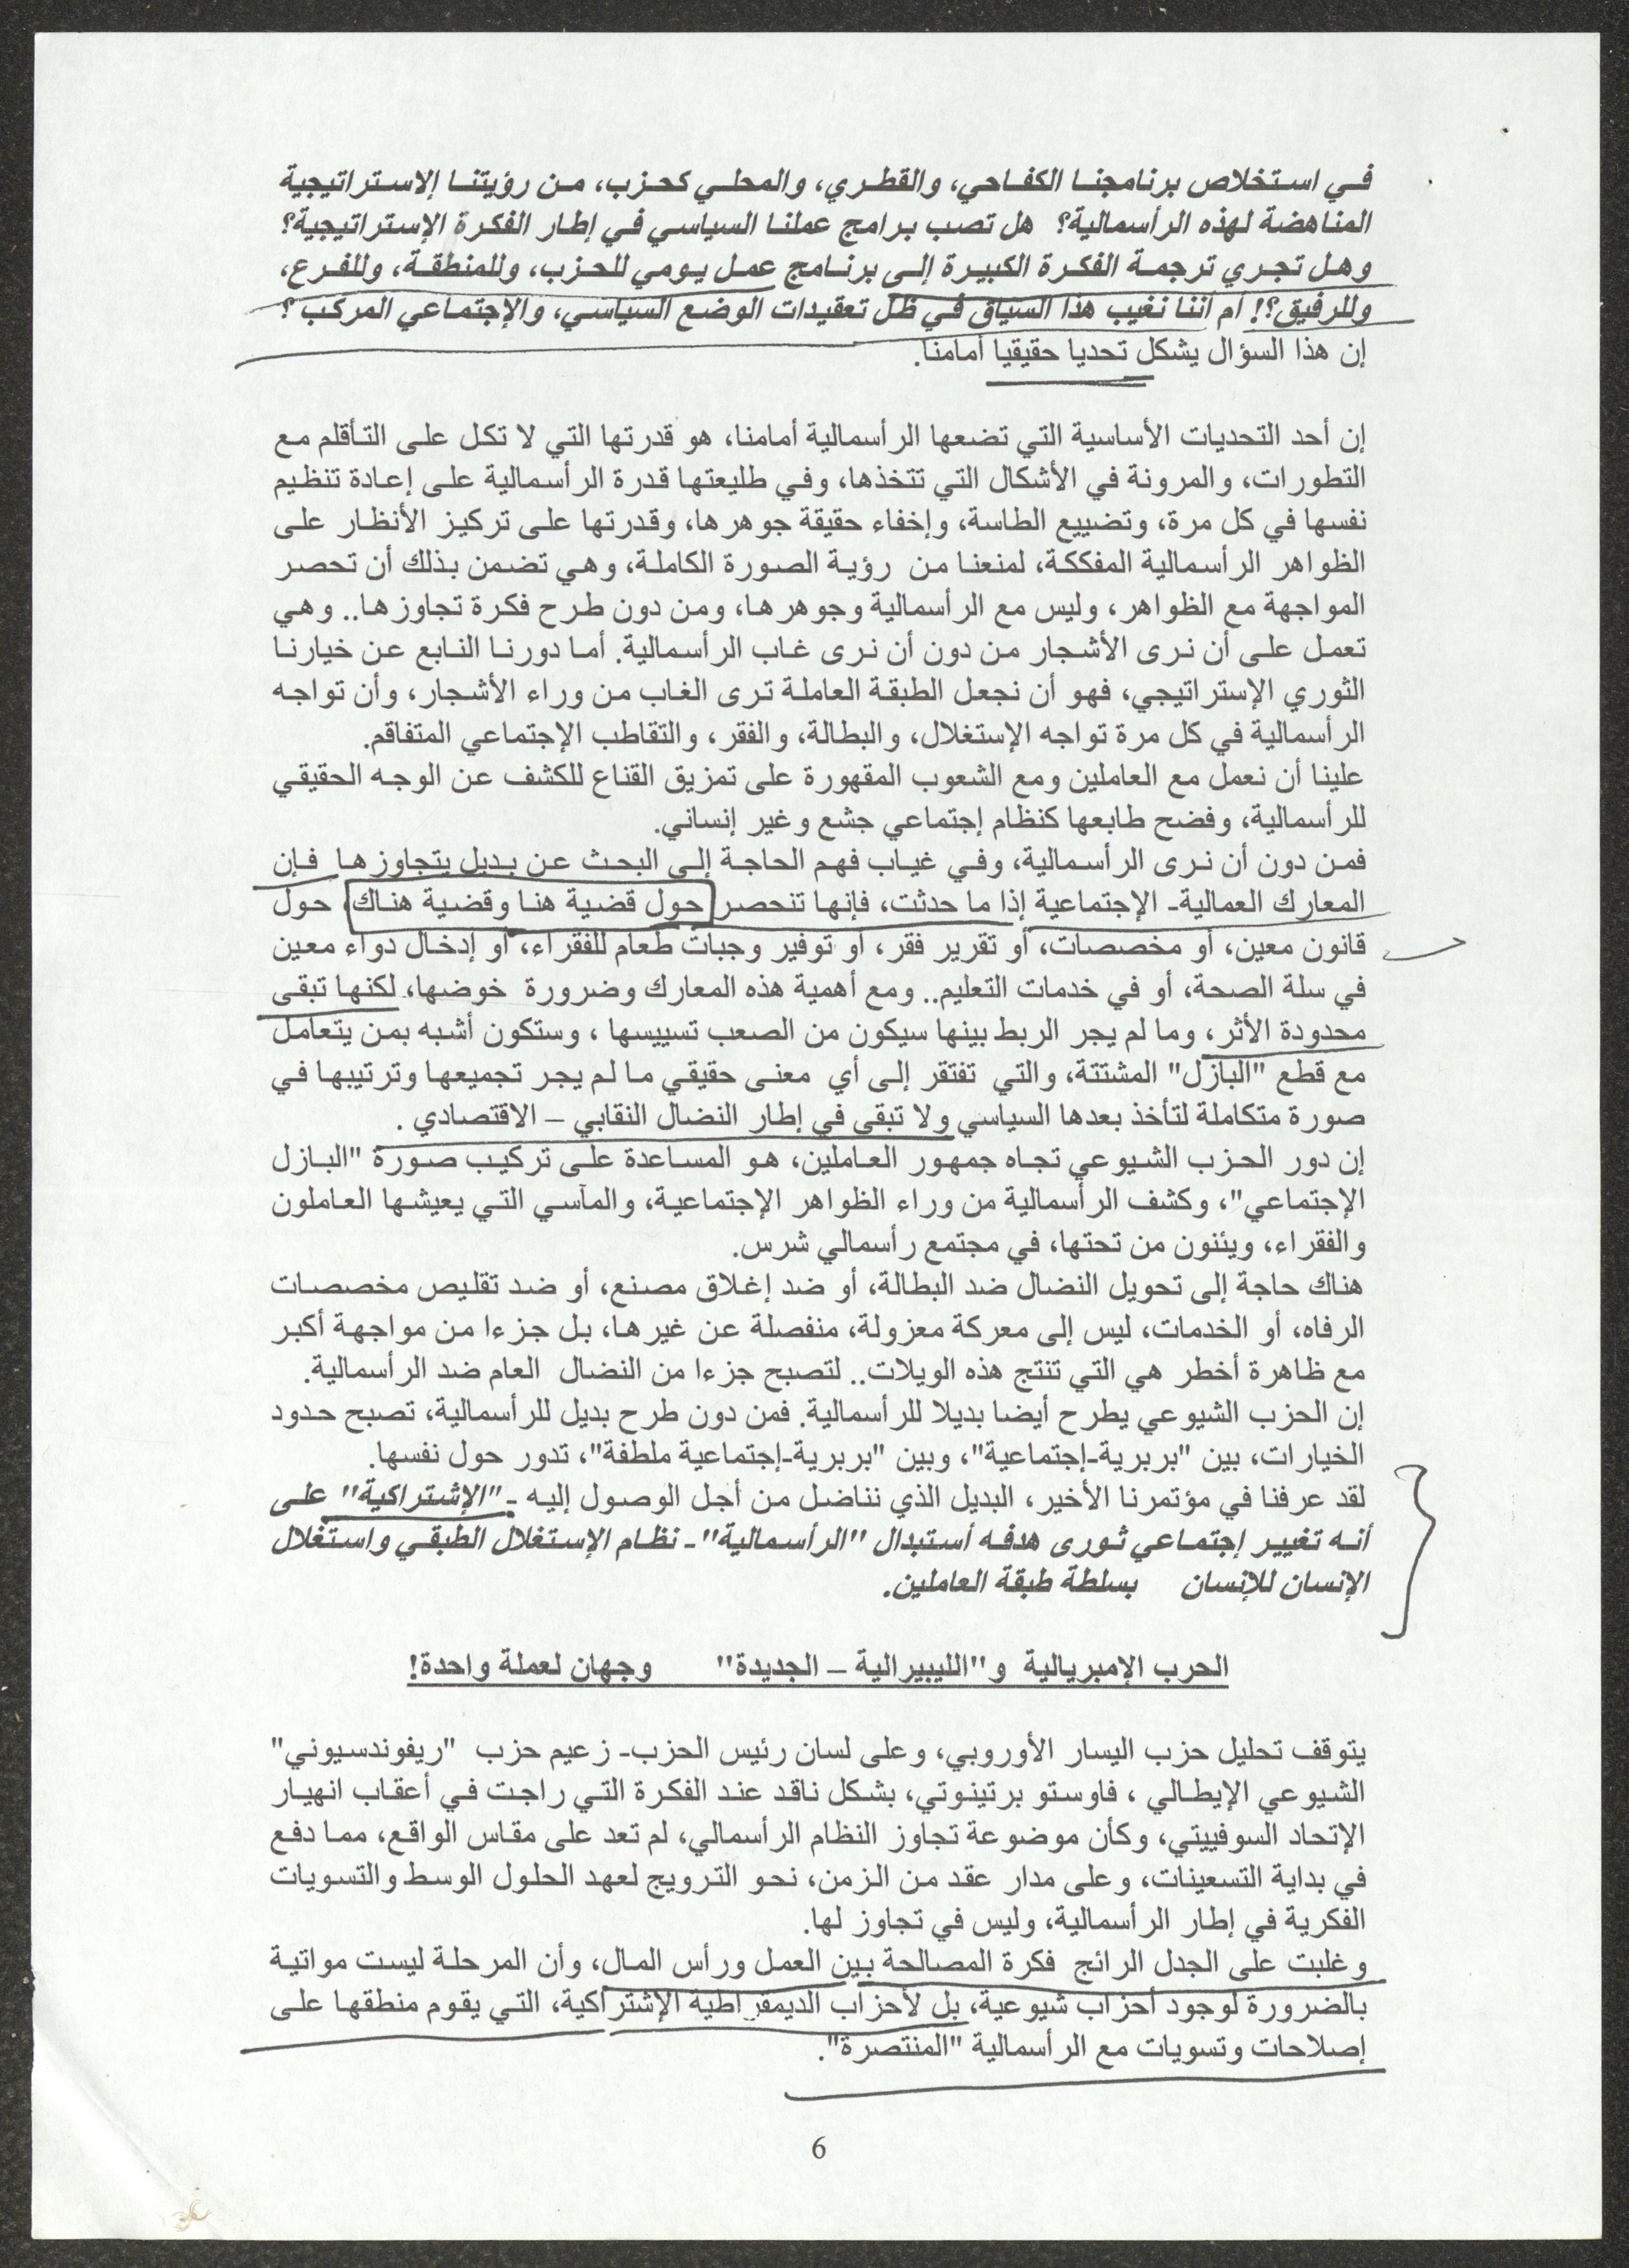 في استخلاص برنامجنا الكفاحي، والقطري، والمحلي كحزب، من رؤيتنا الاستراتيجية
المناهضة لهذه الرأسمالية؟ هل تصب برامج عملنا السياسي في إطار الفكرة الإستراتيجية؟
وهل تجري ترجمة الفكرة الكبيرة إلى برنامج عمل يومي للحزب، وللمنطقة، وللفرع،
وللرفيق؟! أم أننا نغيب هذا السياق في ظل تعقيدات الوضع السياسي، والإجتماعي المركب ؟
إن هذا السؤال يشكل تحديا حقيقيا أمامنا.
إن أحد التحديات الأساسية التي تضعها الرأسمالية أمامنا، هو قدرتها التي لا تكل على التأقلم مع
التطورات، والمرونة في الأشكال التي تتخذها، وفي طليعتها قدرة الرأسمالية على إعادة تنظيم
نفسها في كل مرة، وتضييع الطاسة، وإخفاء حقيقة جوهرها، وقدرتها على تركيز الأنظار على
الظواهر الرأسمالية المفككة، لمنعنا من رؤية الصورة الكاملة، وهي تضمن بذلك أن تحصر
المواجهة مع الظواهر، وليس مع الرأسمالية وجوهرها، ومن دون طرح فكرة تجاوزها.. وهي
تعمل على أن نرى الأشجار من دون أن نرى غاب الرأسمالية. أما دورنا النابع عن خيارنا
الثوري الإستراتيجي، فهو أن نجعل الطبقة العاملة ترى الغاب من وراء الأشجار، وأن تواجه
الرأسمالية في كل مرة تواجه الإستغلال، والبطالة، والفقر، والتقاطب الإجتماعي المتفاقم.
علينا أن نعمل مع العاملين ومع الشعوب المقهورة على تمزيق القناع للكشف عن الوجه الحقيقي
للرأسمالية، وفضح طابعها كنظام إجتماعي جشع وغير إنساني.
فمن دون أن نرى الرأسمالية، وفي غياب فهم الحاجة إلى البحث عن بديل يتجاوزها فإن
المعارك العمالية- الإجتماعية إذا ما حدثت، فإنها تنحصر حول قضية هنا وقضية هناك، حول
قانون معين، أو مخصصات، أو تقرير فقر، أو توفير وجبات طعام للفقراء، أو إدخال دواء معين
في سلة الصحة، أو في خدمات التعليم.. ومع أهمية هذه المعارك وضرورة خوضها، لكنها تبقى
محدودة الأثر، وما لم يجر الربط بينها سيكون من الصعب تسييسها ، وستكون أشبه بمن يتعامل
مع قطع "البازل" المشتتة، والتي تفتقر إلى أي معنى حقيقي ما لم يجر تجميعها وترتيبها في
صورة متكاملة لتأخذ بعدها السياسي ولا تبقى في إطار النضال النقابي – الاقتصادي .
إن دور الحزب الشيوعي تجاه جمهور العاملين، هو المساعدة على تركيب صورة "البازل
الإجتماعي"، وكشف الرأسمالية من وراء الظواهر الإجتماعية، والمآسي التي يعيشها العاملون
والفقراء، ويئنون من تحتها، في مجتمع رأسمالي شرس.
هناك حاجة إلى تحويل النضال ضد البطالة، أو ضد إغلاق مصنع، أو ضد تقليص مخصصات
الرفاه، أو الخدمات، ليس إلى معركة معزولة، منفصلة عن غيرها، بل جزءا من مواجهة أكبر
مع ظاهرة أخطر هي التي تنتج هذه الويلات.. لتصبح جزءا من النضال العام ضد الرأسمالية.
إن الحزب الشيوعي يطرح أيضا بديلا للرأسمالية. فمن دون طرح بديل للرأسمالية، تصبح حدود
الخيارات، بين "بربرية-إجتماعية"، وبين "بربرية-إجتماعية ملطفة"، تدور حول نفسها.
لقد عرفنا في مؤتمرنا الأخير، البديل الذي نناضل من أجل الوصول إليه -"الإشتراكية" على
أنه تغيير إجتماعي ثورى هدفه أستبدال "الرأسمالية"- نظام الإستغلال الطبقي واستغلال
الإنسان للإنسان بسلطة طبقة العاملين.
الحرب الإمبريالية و"الليبيرالية – الجديدة" وجهان لعملة واحدة!
يتوقف تحليل حزب اليسار الأوروبي، وعلى لسان رئيس الحزب- زعيم حزب "ريفوندسيوني"
الشيوعي الإيطالي ، فاوستو برتينوتي، بشكل ناقد عند الفكرة التي راجت في أعقاب انهيار
الإتحاد السوفييتي، وكأن موضوعة تجاوز النظام الرأسمالي، لم تعد على مقاس الواقع، مما دفع
في بداية التسعينات، وعلى مدار عقد من الزمن، نحو الترويج لعهد الحلول الوسط والتسويات
الفكرية في إطار الرأسمالية، وليس في تجاوز لها.
وغلبت على الجدل الرائج فكرة المصالحة بين العمل ورأس المال، وأن المرحلة ليست مواتية
بالضرورة لوجود أحزاب شيوعية، بل لأحزاب الديمقراطية الإشتراكية، التي يقوم منطقها على
إصلاحات وتسويات مع الرأسمالية "المنتصرة".
6